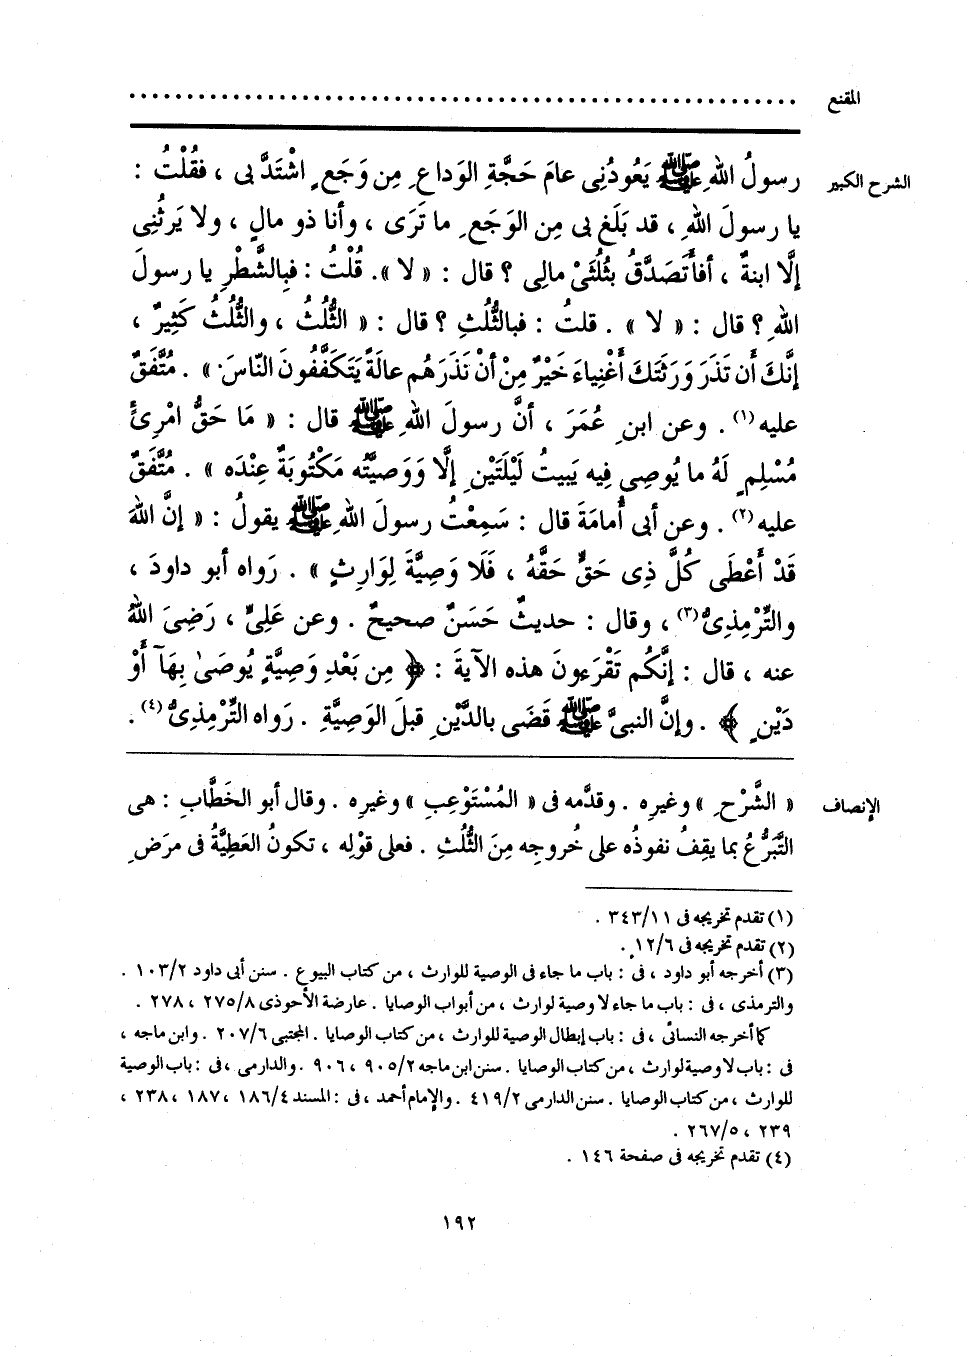 المقنع ................................................................
الشرح الكبير رسولُ اللهِ ﷺ يَعُودُنِى عامَ حَجَّةِ الوَداعِ مِن وَجَعٍ اشْتَدَّ بى ، فقُلْتُ :
يا رسولَ اللهِ ، قد بَلَغ بى مِن الوَجَعِ ما تَرَى ، وأنا ذو مالٍ ، ولا يَرثُنِى
إلَّا ابنةٌ ، أفأتَصَدَّقُ بثُلُثَىْ مالِى ؟ قال : « لا ». قُلْتُ : فبِالشَّطْرِ يا رسولَ
اللهِ ؟ قال : « لا » . قلتُ : فبالثُّلُثِ ؟ قال : « الثُّلُثُ ، والثُّلُثُ كَثِيرٌ ،
إنَّكَ أن تَذَرَ وَرَثَتَكَ أغْنِياءَ خَيْرٌ مِنْ أنْ تَذَرَهُم عالَةً يَتَكَفَّفُونَ النّاسَ » . مُتَّفَقٌ
عليه(١) . وعن ابنِ عُمَرَ ، أنَّ رسولَ اللهِ ﷺ قال : « مَا حَقُّ امْرِئً
مُسْلِمٍ لَهُ ما يُوصِى فيه يَبيتُ لَيْلَتَيْنِ إلَّا وَوَصِيَّتُه مَكْتُوبَةٌ عِنْدَه » . مُتَّفَقٌ
عليه(٢) . وعن أبى أُمامَةَ قال : سَمِعْتُ رسولَ اللهِ ﷺ يقولُ : « إنَّ اللهَ
قَدْ أَعْطَى كُلَّ ذِى حَقٍّ حَقَّهُ ، فَلَا وَصِيَّةَ لِوَارِثٍ » . رَواه أبو داودَ ،
والتِّرْمِذِىُّ(٣) ، وقال : حديثٌ حَسَنٌ صحيحٌ . وعن عَلِىٍّ ، رَضِىَ اللهُ
عنه ، قال : إنَّكُم تَقْرَءونَ هذه الآيةَ : ﴿ مِن بَعْدِ وَصِيَّةٍ يُوصَىٰ بِهَآ أَوْ
دَيْنٍ ﴾ . وإنَّ النبىَّ ﷺ قَضَى بالدَّيْنِ قبلَ الوَصِيَّةِ . رَواه التِّرْمِذِىُّ(٤) .
الإنصاف « الشَّرْحِ » وغيرِه . وقدَّمه فى « المُسْتَوْعِبِ » وغيرِه . وقال أبو الخَطَّابِ : هى
التَّبَرُّعُ بما يقِفُ نفوذُه على خُروجِه مِنَ الثُّلُثِ . فعلى قوْلِه ، تكونُ العَطِيَّةُ فى مرَضِ
(١) تقدم تخريجه فى ٣٤٣/١١ .
(٢) تقدم تخريجه فى ١٢/٦ .
(٣) أخرجه أبو داود ، فى : باب ما جاء فى الوصية للوارث ، من كتاب البيوع . سنن أبى داود ١٠٣/٢ .
والترمذى ، فى : باب ما جاء لا وصية لوارث ، من أبواب الوصايا . عارضة الأحوذى ٢٧٥/٨ ، ٢٧٨ .
كما أخرجه النسائى ، فى : باب إبطال الوصية للوارث ، من كتاب الوصايا . المجتبى ٢٠٧/٦ . وابن ماجه ،
فى : باب لا وصية لوارث ، من كتاب الوصايا . سنن ابن ماجه ٩٠٥/٢ ، ٩٠٦ . والدارمى ، فى : باب الوصية
للوارث ، من كتاب الوصايا . سنن الدارمى ٤١٩/٢ . والإمام أحمد ، فى : المسند ١٨٦/٤ ، ١٨٧ ، ٢٣٨ ،
٢٣٩ ، ٢٦٧/٥ .
(٤) تقدم تخريجه فى صفحة ١٤٦ .
١٩٢